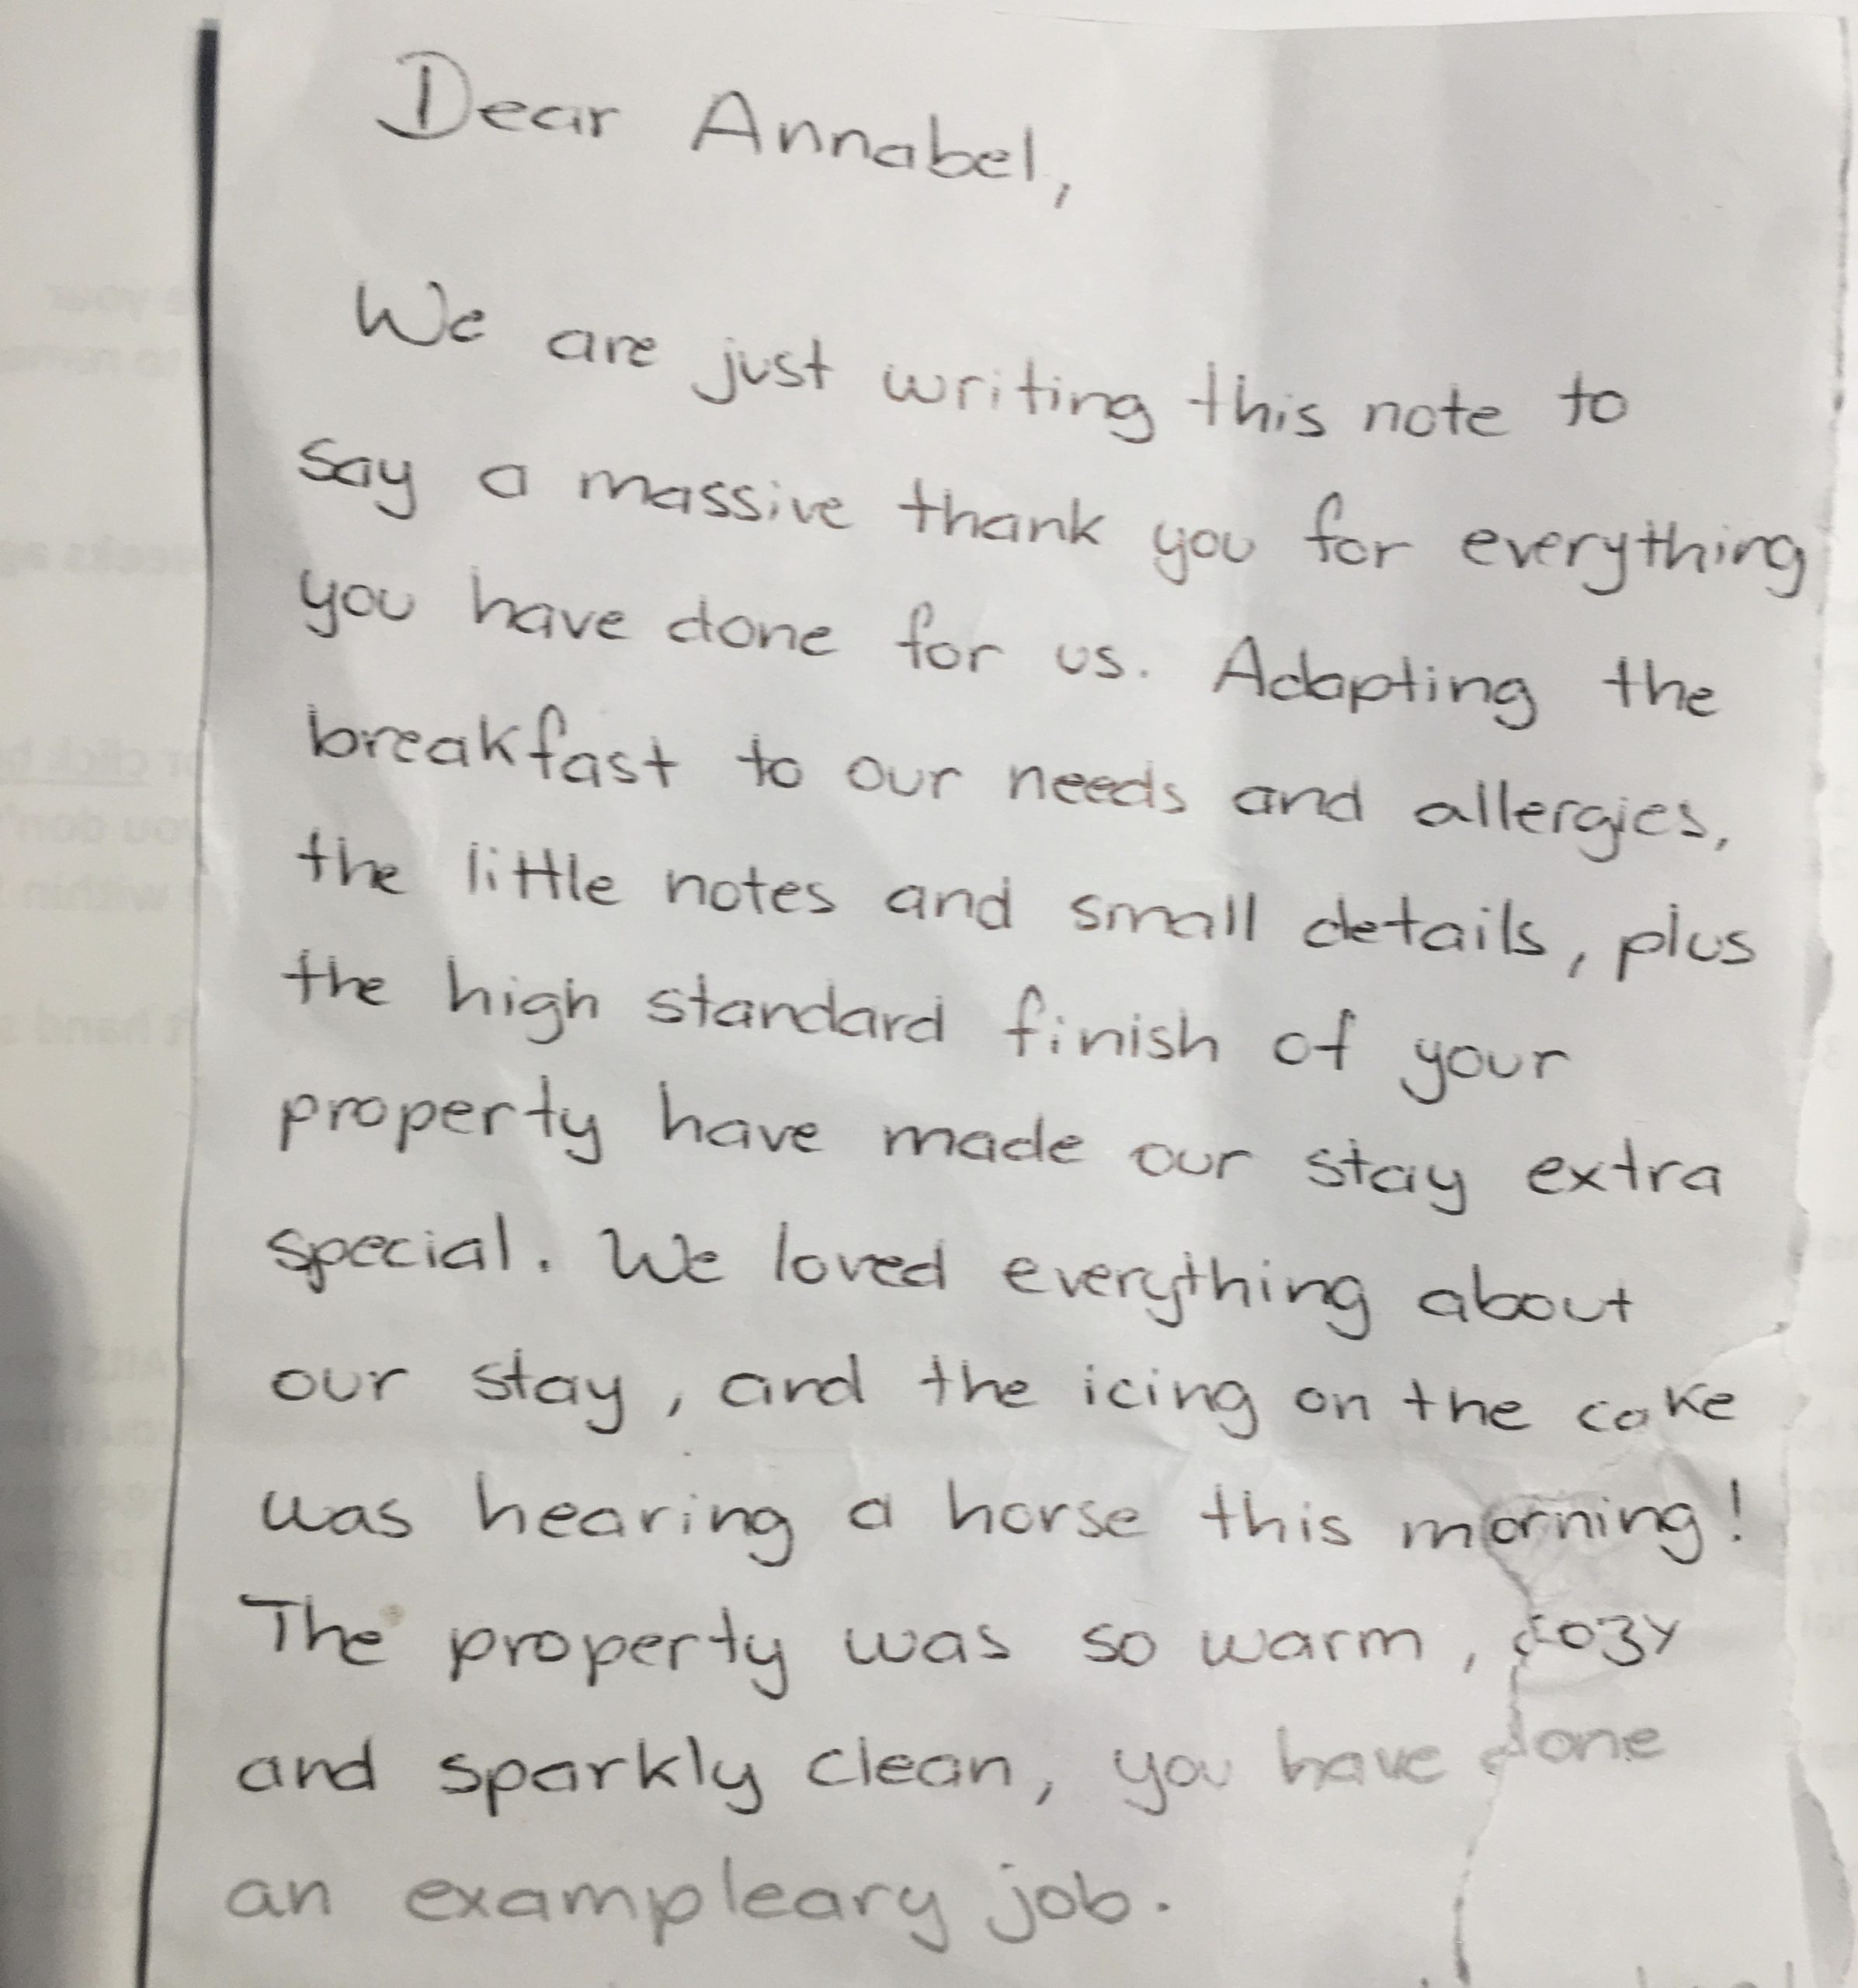 Dear Annabel,
We are just writing this note to
say a massive thank you for everything
you have done for us. Adapting the
breakfast to our needs and allergies,
the little notes and small details, plus
the high standard finish of your
property have made our stay extra
special. We loved everything about
our stay, and the icing on the cake
was hearing a horse this morning!
The property was so warm, cozy
and sparkly clean, you have done
an exampleary job.